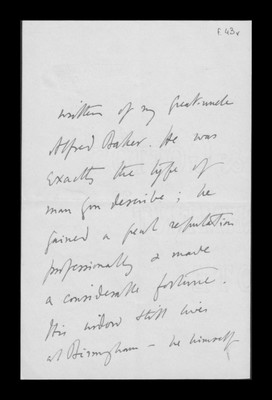 F. 43v
written of my great-uncle
Alfred Baker. He was
exactly the type of
man you describe; he
gained a great reputation
professionally & made
a considerable fortune.
His widow still lives
at Birmingham – he himself